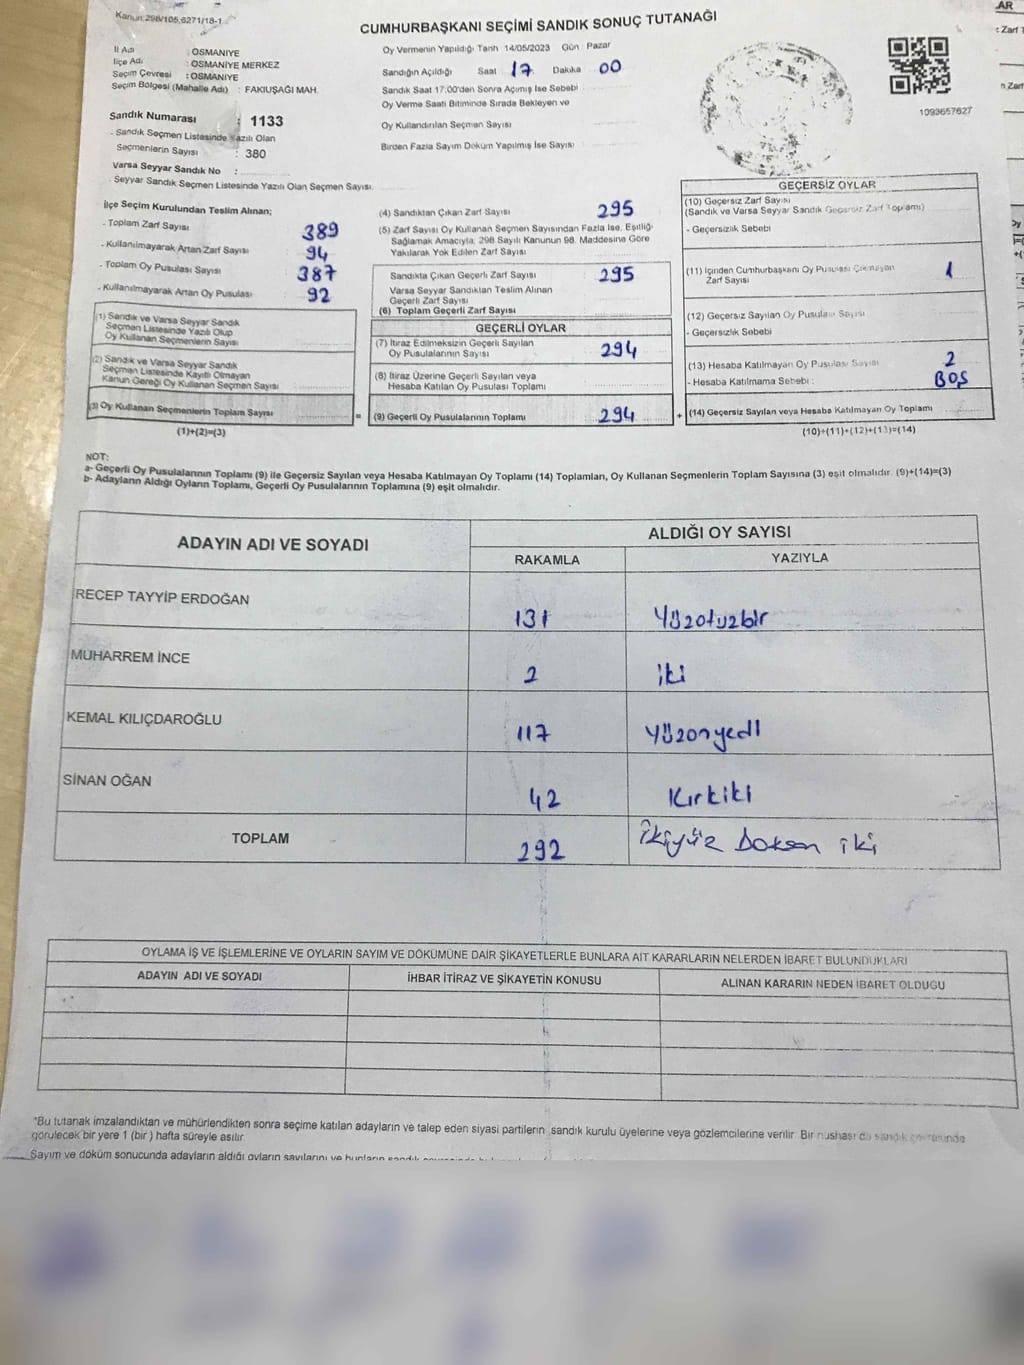 Kanun:298/105,6271/18-1
CUMHURBAŞKANI SEÇİMİ SANDIK SONUÇ TUTANAĞI
İl Adı : OSMANİYE
İlçe Adı : OSMANİYE MERKEZ
Seçim Çevresi : OSMANİYE
Seçim Bölgesi (Mahalle Adı) : FAKIUŞAĞI MAH.
Sandık Numarası : 1133
- Sandık Seçmen Listesinde Yazılı Olan
Seçmenlerin Sayısı : 380
Varsa Seyyar Sandık No :
- Seyyar Sandık Seçmen Listesinde Yazılı Olan Seçmen Sayısı:
Oy Vermenin Yapıldığı Tarih 14/05/2023 Gün Pazar
Sandığın Açıldığı Saat 17 Dakika 00
Sandık Saat 17:00'den Sonra Açılmış İse Sebebi
Oy Verme Saati Bitiminde Sırada Bekleyen ve
Oy Kullandırılan Seçmen Sayısı
Birden Fazla Sayım Döküm Yapılmış İse Sayısı
1093657627
AR
: Zarf T
n Zarf
İlçe Seçim Kurulundan Teslim Alınan;
- Toplam Zarf Sayısı 389
- Kullanılmayarak Artan Zarf Sayısı 94
- Toplam Oy Pusulası Sayısı 387
- Kullanılmayarak Artan Oy Pusulası 92
(1) Sandık ve Varsa Seyyar Sandık
Seçmen Listesinde Yazılı Olup
Oy Kullanan Seçmenlerin Sayısı
(2) Sandık ve Varsa Seyyar Sandık
Seçmen Listesinde Kayıtlı Olmayan
Kanun Gereği Oy Kullanan Seçmen Sayısı
(3) Oy Kullanan Seçmenlerin Toplam Sayısı =
(1)+(2)=(3)
(4) Sandıktan Çıkan Zarf Sayısı 295
(5) Zarf Sayısı Oy Kullanan Seçmen Sayısından Fazla İse, Eşitliği
Sağlamak Amacıyla, 298 Sayılı Kanunun 98. Maddesine Göre
Yakılarak Yok Edilen Zarf Sayısı
Sandıkta Çıkan Geçerli Zarf Sayısı 295
Varsa Seyyar Sandıktan Teslim Alınan
Geçerli Zarf Sayısı
(6) Toplam Geçerli Zarf Sayısı
GEÇERLİ OYLAR
(7) İtiraz Edilmeksizin Geçerli Sayılan
Oy Pusulalarının Sayısı 294
(8) İtiraz Üzerine Geçerli Sayılan veya
Hesaba Katılan Oy Pusulası Toplamı
(9) Geçerli Oy Pusulalarının Toplamı 294 +
GEÇERSİZ OYLAR
(10) Geçersiz Zarf Sayısı
(Sandık ve Varsa Seyyar Sandık Geçersiz Zarf Toplamı)
- Geçersizlik Sebebi
(11) İçinden Cumhurbaşkanı Oy Pusulası Çıkmayan
Zarf Sayısı 1
(12) Geçersiz Sayılan Oy Pusulası Sayısı
- Geçersizlik Sebebi
(13) Hesaba Katılmayan Oy Pusulası Sayısı 2
- Hesaba Katılmama Sebebi : BOŞ
(14) Geçersiz Sayılan veya Hesaba Katılmayan Oy Toplamı
(10)+(11)+(12)+(13)=(14)
NOT:
a- Geçerli Oy Pusulalarının Toplamı (9) ile Geçersiz Sayılan veya Hesaba Katılmayan Oy Toplamı (14) Toplamları, Oy Kullanan Seçmenlerin Toplam Sayısına (3) eşit olmalıdır. (9)+(14)=(3)
b- Adayların Aldığı Oyların Toplamı, Geçerli Oy Pusulalarının Toplamına (9) eşit olmalıdır.
ADAYIN ADI VE SOYADI
ALDIĞI OY SAYISI
RAKAMLA YAZIYLA
RECEP TAYYİP ERDOĞAN 131 Yüzotuzbir
MUHARREM İNCE 2 iki
KEMAL KILIÇDAROĞLU 117 Yüzonyedi
SİNAN OĞAN 42 Kırkiki
TOPLAM 292 İkiyüz Doksan iki
OYLAMA İŞ VE İŞLEMLERİNE VE OYLARIN SAYIM VE DÖKÜMÜNE DAİR ŞİKAYETLERLE BUNLARA AİT KARARLARIN NELERDEN İBARET BULUNDUKLARI
ADAYIN ADI VE SOYADI İHBAR İTİRAZ VE ŞİKAYETİN KONUSU ALINAN KARARIN NEDEN İBARET OLDUĞU
*Bu tutanak imzalandıktan ve mühürlendikten sonra seçime katılan adayların ve talep eden siyasi partilerin ,sandık kurulu üyelerine veya gözlemcilerine verilir. Bir nüshası da sandık çevresinde
görülecek bir yere 1 (bir ) hafta süreyle asılır.
Sayım ve döküm sonucunda adayların aldığı oyların sayılarını ve bunların